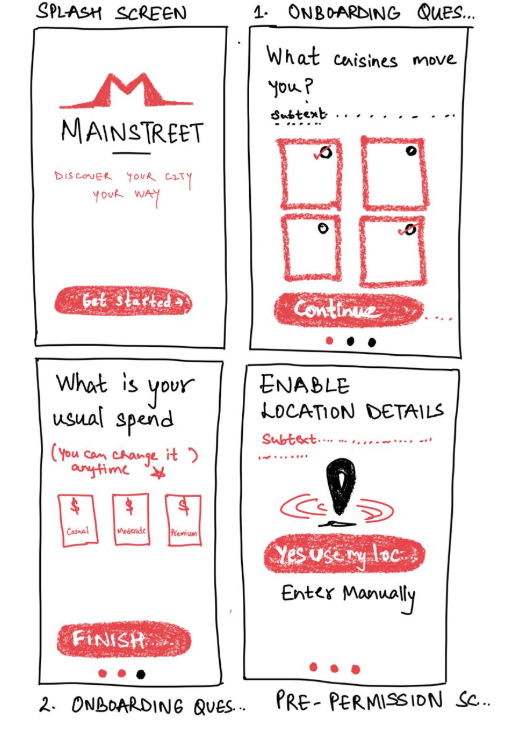 SPLASH SCREEN
MAINSTREET
DISCOVER YOUR CITY
YOUR WAY
Get started→
1. ONBOARDING QUES...
What cuisines move
you?
Subtext........
Continue
What is your
usual spend
(You can change it )
anytime
$ $ $
Casual Moderate Premium
FINISH
2. ONBOARDING QUES...
ENABLE
LOCATION DETAILS
Subtext..............
Yes use my loc...
Enter Manually
PRE-PERMISSION SC...